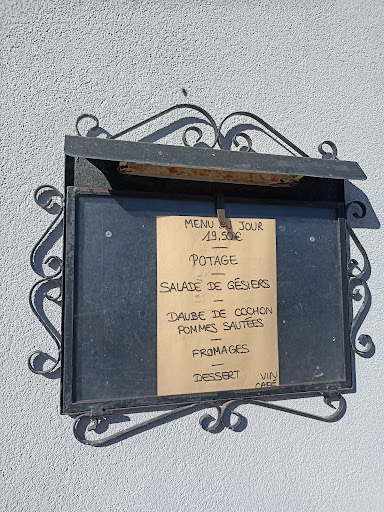 MENU DU JOUR
19,50€
POTAGE
SALADE DE GÉSIERS
DAUBE DE COCHON
POMMES SAUTÉES
FROMAGES
DESSERT
VIN
CAFÉ